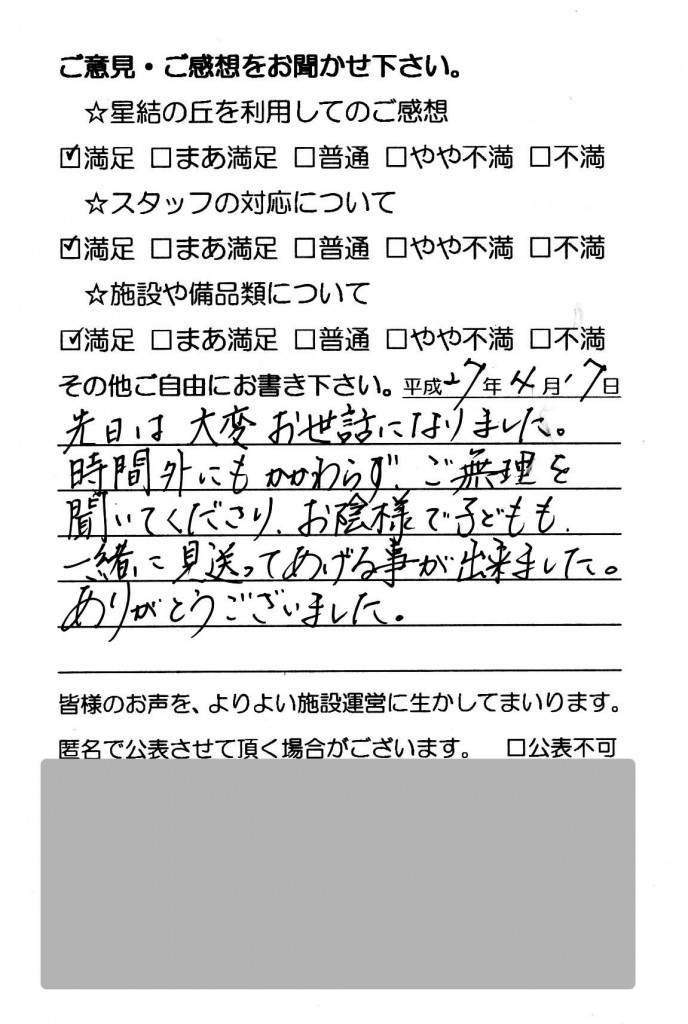 ご意見・ご感想をお聞かせ下さい。
☆星結の丘を利用してのご感想
☑満足 □まあ満足 □普通 □やや不満 □不満
☆スタッフの対応について
☑満足 □まあ満足 □普通 □やや不満 □不満
☆施設や備品類について
☑満足 □まあ満足 □普通 □やや不満 □不満
その他ご自由にお書き下さい。平成27年4月17日
先日は大変お世話になりました。
時間外にもかかわらず、ご無理を
聞いてくださり、お陰様で子どもも、
一緒に見送ってあげる事が出来ました。
ありがとうございました。
皆様のお声を、よりよい施設運営に生かしてまいります。
匿名で公表させて頂く場合がございます。 □公表不可